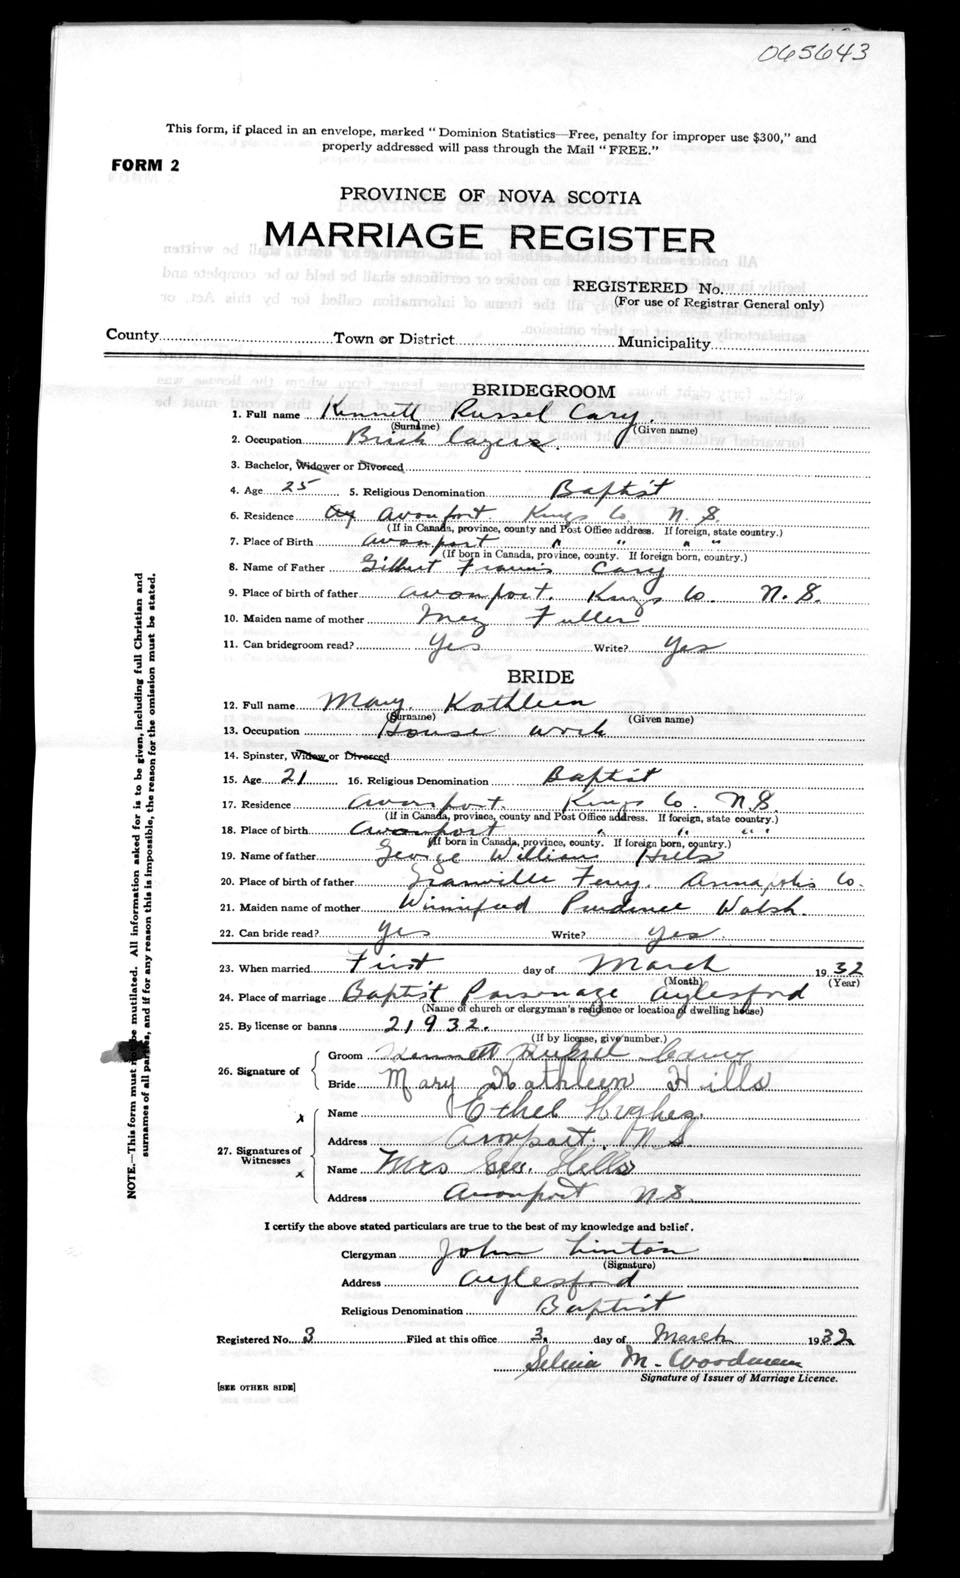 065643
This form, if placed in an envelope, marked "Dominion Statistics—Free, penalty for improper use $300," and
properly addressed will pass through the Mail "FREE."
FORM 2
PROVINCE OF NOVA SCOTIA
MARRIAGE REGISTER
REGISTERED No.
(For use of Registrar General only)
County Town or District Municipality
BRIDEGROOM
1. Full name Kennett Russel Cary
(Surname) (Given name)
2. Occupation Brick
3. Bachelor, Widower or Divorced
4. Age 25 5. Religious Denomination Baptist
6. Residence Avonport Kings Co N.S.
(If in Canada, province, county and Post Office address. If foreign, state country.)
7. Place of Birth Avonport " " " "
(If born in Canada, province, county. If foreign born, country.)
8. Name of Father Gilbert Francis Cary
9. Place of birth of father Avonport. Kings Co. N.S.
10. Maiden name of mother Fuller
11. Can bridegroom read? Yes Write? Yes
BRIDE
12. Full name Mary Kathleen
(Surname) (Given name)
13. Occupation House work
14. Spinster, Widow or Divorced
15. Age 21 16. Religious Denomination Baptist
17. Residence Avonport. Kings Co. N.S.
(If in Canada, province, county and Post Office address. If foreign, state country.)
18. Place of birth Avonport " " " "
(If born in Canada, province, county. If foreign born, country.)
19. Name of father George William Hills
20. Place of birth of father Granville Ferry. Annapolis Co.
21. Maiden name of mother Winnifred Prudence Walsh.
22. Can bride read? Yes Write? Yes.
23. When married First day of March 1932
(Month) (Year)
24. Place of marriage Baptist Parsonage Aylesford
(Name of church or clergyman's residence or location of dwelling house)
25. By license or banns 21932.
(If by license, give number.)
26. Signature of
Groom Kennett Russel Cary
Bride Mary Kathleen Hills
27. Signatures of Witnesses
x Name Ethel Hughes.
Address Avonport. N S
x Name Mrs Geo. Hills
Address Avonport N.S.
I certify the above stated particulars are true to the best of my knowledge and belief.
Clergyman John Linton
(Signature)
Address Aylesford
Religious Denomination Baptist
Registered No. 3 Filed at this office 3. day of March 1932
M. Woodman
Signature of Issuer of Marriage Licence.
[SEE OTHER SIDE]
NOTE.—This form must not be mutilated. All information asked for is to be given, including full Christian and
surnames of all parties, and if for any reason this is impossible, the reason for the omission must be stated.